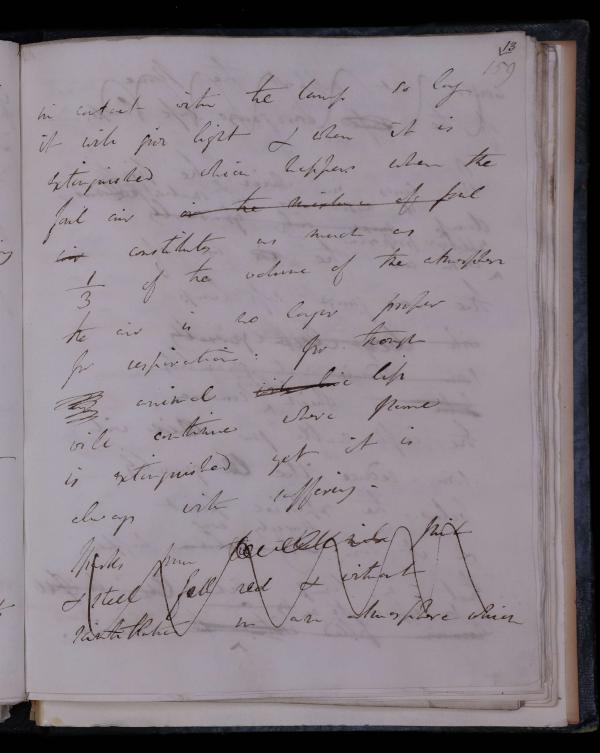 13
159
in contact with the lamp so long
it will give light & when it is
extinguished which happens when the
foul air is the mixture of foul
air constitutes as much as
1/3 of the volume of the atmosphere
the air is no longer proper
for respiration: for though
animal life
will continue where flame
is extinguished yet it is
always with suffering.
Sparks from flint
& steel fell red & without
scintillation in an atmosphere which